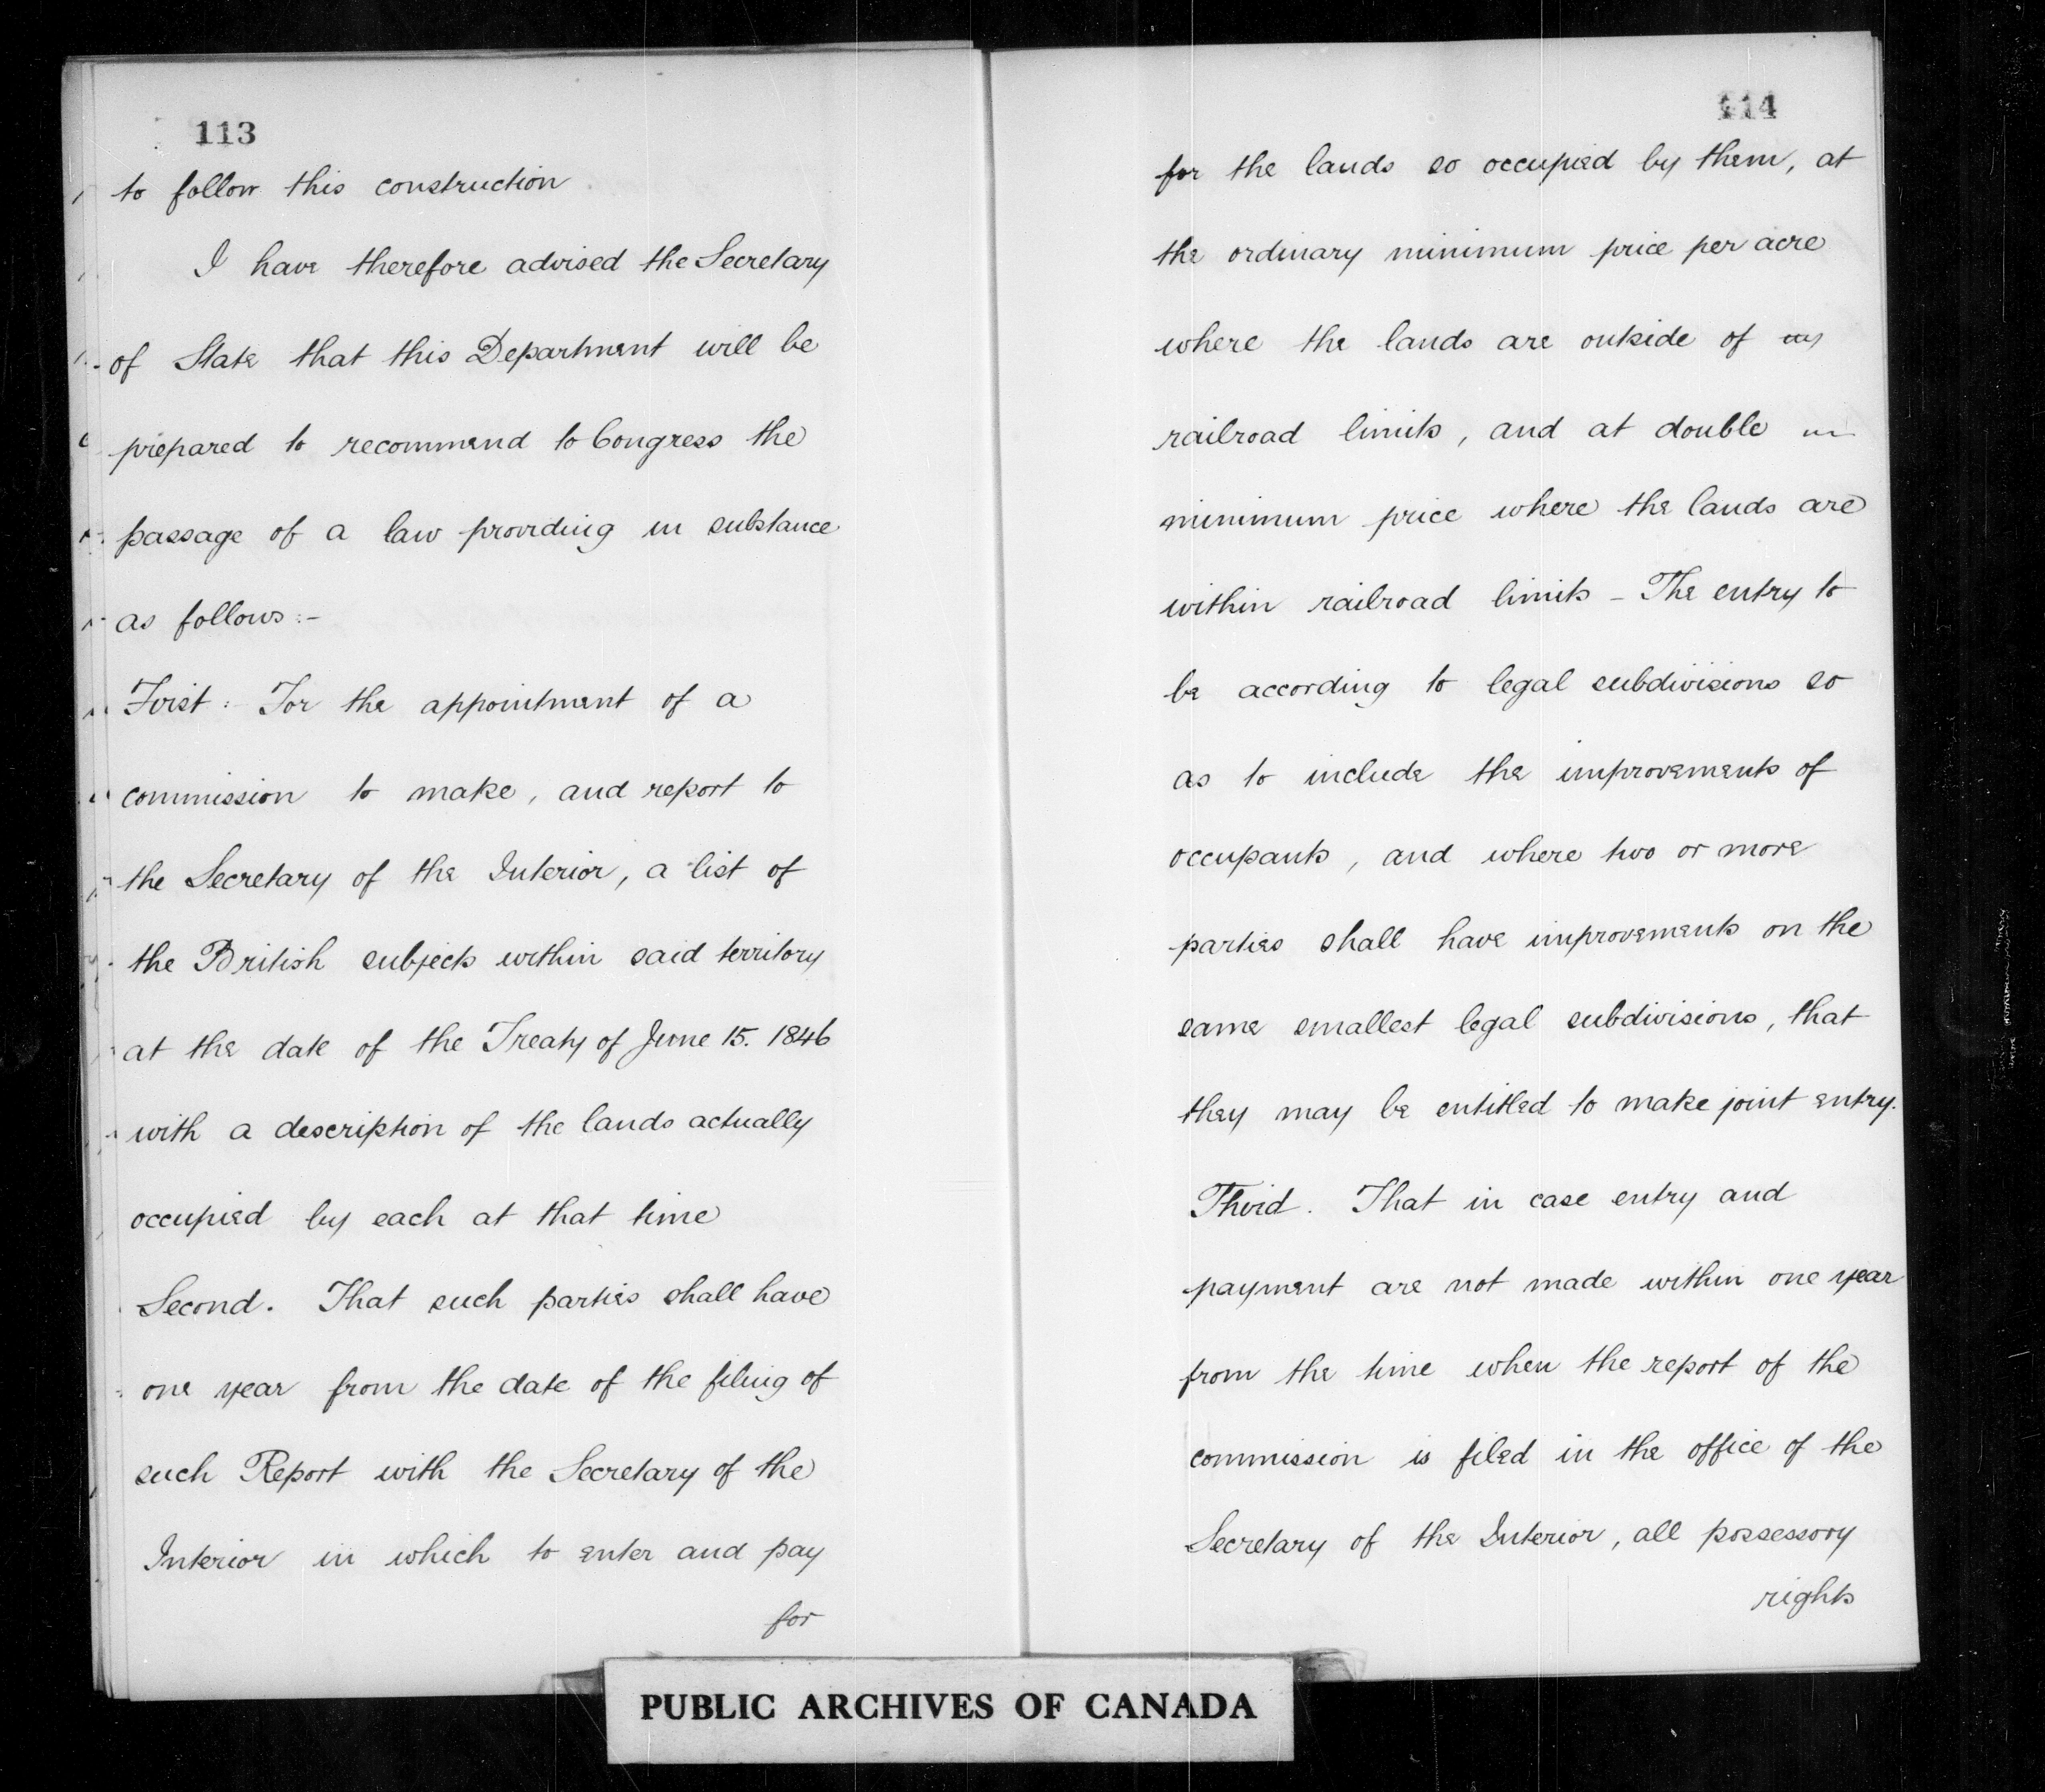 113
to follow this construction
I have therefore advised the Secretary
of State that this Department will be
prepared to recommend to Congress the
passage of a law providing in substance
as follows:-
First: For the appointment of a
commission to make, and report to
the Secretary of the Interior, a list of
the British subjects within said territory
at the date of the Treaty of June 15. 1846
with a description of the lands actually
occupied by each at that time
Second. That such parties shall have
one year from the date of the filing of
such Report with the Secretary of the
Interior in which to enter and pay
for
114
for the lands so occupied by them, at
the ordinary minimum price per acre
where the lands are outside of
railroad limits, and at double
minimum price where the lands are
within railroad limits - The entry to
be according to legal subdivisions so
as to include the improvements of
occupants, and where two or more
parties shall have improvements on the
same smallest legal subdivisions, that
they may be entitled to make joint entry.
Third. That in case entry and
payment are not made within one year
from the time when the report of the
commission is filed in the office of the
Secretary of the Interior, all possessory
rights
PUBLIC ARCHIVES OF CANADA